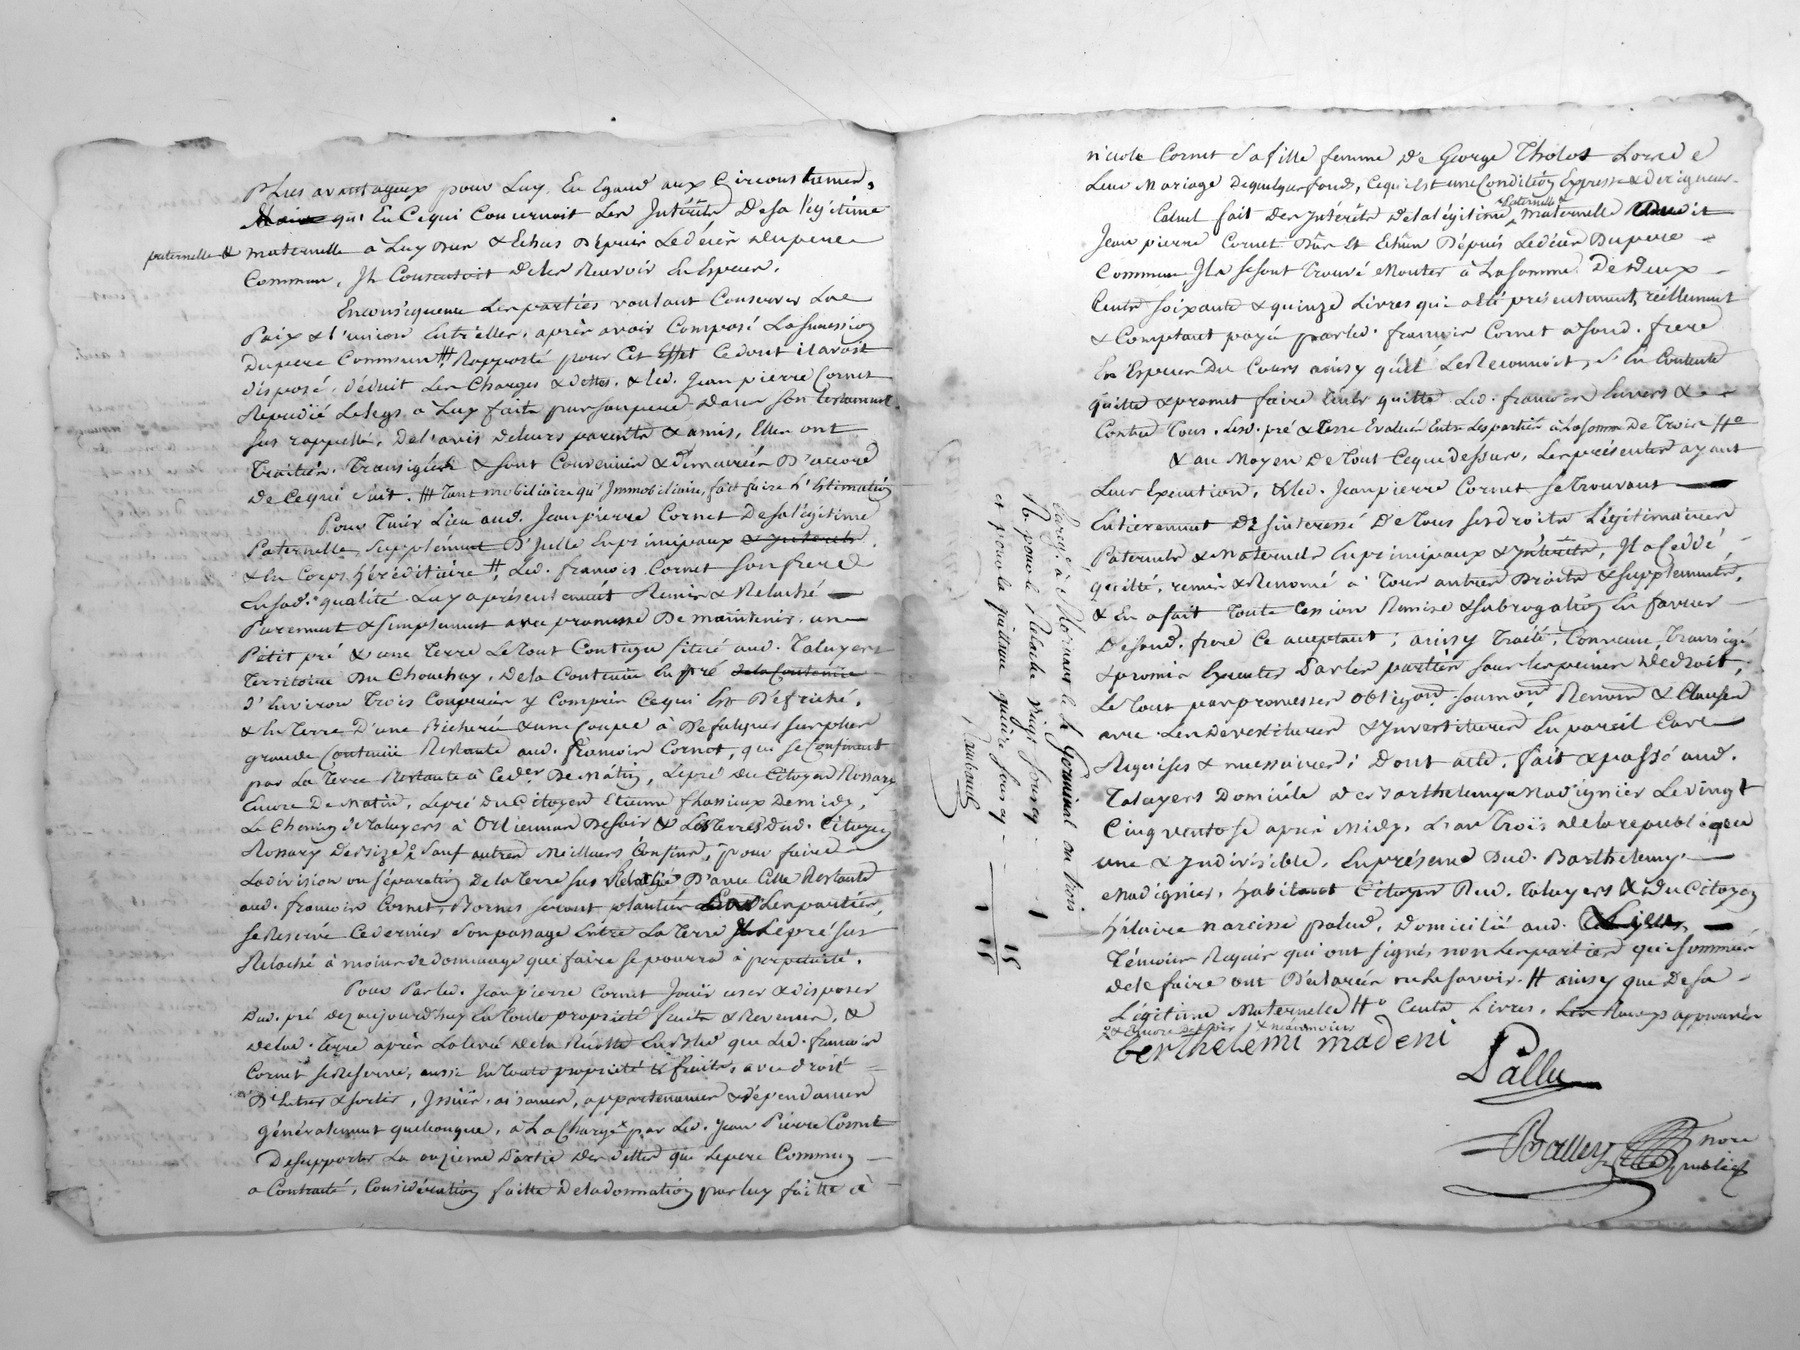 plus avantageux pour Luy, En Egard aux Circonstances,
qu'En Cequi Concernoit Les Intérêts Desa légitime
paternelle & maternelle a Luy Dûs & Echus Dépuis Ledécès Dupere
Commun, Il Consentoit deles Recevoir En Espèces.
Enconséquence Lesparties voulant Conserver La
Paix & l'union Entr'elles, après avoir Composé Lasuccession
Dupere Commun # Rapporté pour Cet Effet Cedont il avoit
disposé, déduit Les Charges & dettes, & led. Jean pierre Cornet
Repudié Lelegs a Luy faits par sonpere Dans son testament
sus rappellé, Del'avis deleurs parents & amis, Elles ont
Traitées, Transigées & sont Convenües & Demeurées D'accord
De Cequi suit. # Tant mobiliaire qu'Immobiliaire, fait faire L'Estimation
Pour Tenir Lieu aud. Jeanpierre Cornet Desalégitime
Paternelle, supplément D'Icelle En principaux & Intérêts,
& En Corps héréditaire #, Led. francois Cornet son frere
Ensad. qualité Luy a présentement Remis & Relaché
Purement & simplement avec promesse De maintenir, un
Petit pré & une Terre Letout Contigu situé aud. Taluyers
Territoire Du Chouchay, Dela Contenüe En pré dela Contenüe
D'Environ Trois Coupées y Compris Cequi Est Défriché,
& En Terre D'une Bicherée & une Coupée à Défalquer surplus
grande Contenüe Restante aud. francois Cornet, qui se Confinent
par La Terre Restante à Ceder De Matin, Lepré du Citoyen Rossary
Encore De Matin, Lepré Du Citoyen Etienne flassieux De midy,
Le Chemin de Taluyers à Orlienas De soir & Les Terres Dud. Citoyen
Rossary De Bize, Sauf autres Meilleurs Confins, pour faire
Ladivision ou séparation De la Terre sus Relaché D'avec Celle Restante
aud. francois Cornet, Bornes seront plantées Lesparties,
seReserve Cedernier son passage Entre La Terre & Lepré sus
Relaché à moins de dommage que faire se pourra à perpetuité.
Pour Par led. Jean pierre Cornet Jouir user & disposer
Dud. pré dez aujourd'huy En Toute propriété fruits & Revenus, &
delad. Terre après La levée de la Récolte En Bled que Led. francois
Cornet se Reserve, aussi En Toute propriété & fruits, avec droit
D'Entrer & sortir, Issües, aisances, appartenances & dépendances
généralement quelconque, à La Charge par Led. Jean Pierre Cornet
De supporter La onzieme Partie Des dettes que Lepere Commun
a Contracté, Considération faitte De la donation par luy faitte à
nicole Cornet Sa fille femme De George Tholot Lorsde
Leur Mariage Dequelques fonds, Cequi Est une Condition Expresse & De rigueur.
Calcul fait Des Intérêts De la légitime paternelle & maternelle Dudit
Jean pierre Cornet Dûs Et Echus Dépuis Ledécès Dupere
Commun Ils se sont Trouvé Monter à La somme De Deux
Cents soixante & quinze Livres qui a été présentement, réellement
& Comptant payé par led. francois Cornet a sond. frere
En Espèces Du Cours ainsy qu'il Le Reconnoit, s'En Contente
quitte & promet faire Tenir quitte Led. francois Envers &
Contre Tous. Lesd. pré & Terre Evalués Entre Lesparties à La somme De Trois #
& au Moyen De Tout Ceque dessus, Lesprésentes ayant
Leur Execution, & Led. Jean pierre Cornet se Trouvant
Entierement Désinteressé De Tous ses droits Légitimaires
Paternels & Maternels En principaux & Intérêts, Il a Ceddé,
quitté, remis & Renoncé à Tous autres Droits & supplements,
& En a fait Toute Cession Remise & subrogation En faveur
De sond. frere Ce acceptant; ainsy Traité, Convenu, Transigé
& promis Executer Par les parties sous les peines De droit,
Le Tout par promesses Obligaōns soumōns Renonc. & Clauses
avec Les Dévestitures & Investitures En pareil Cas
Requises & necessaires; Dont acte, fait & passé aud.
Taluyers Domicile de Barthelemy Madignier Le vingt
Cinq ventose après Midy, L'an Trois De la republique
une & Indivisible, En présence Dud. Barthelemy
Madignier, habitant Citoyen Dud. Taluyers & Du Citoyen
hilaire narcisse palud, Domicilié aud.
Témoins Requis qui ont signés non Les parties qui sommées
de le faire ont Déclarées ne Le savoir. # ainsy que De sa
Légitime Maternelle #° Cents Livres, Les Renvois approuvés
& Encore De soir & néanmoins
berthelemi madeni
Pallu
Balley nore
public
Enregé à Mornant le 1 Germinal an trois
Rs pour le Relaché vingt sous cy 1
et pour la quittance quinze sous cy 15
1 15
Rambaud